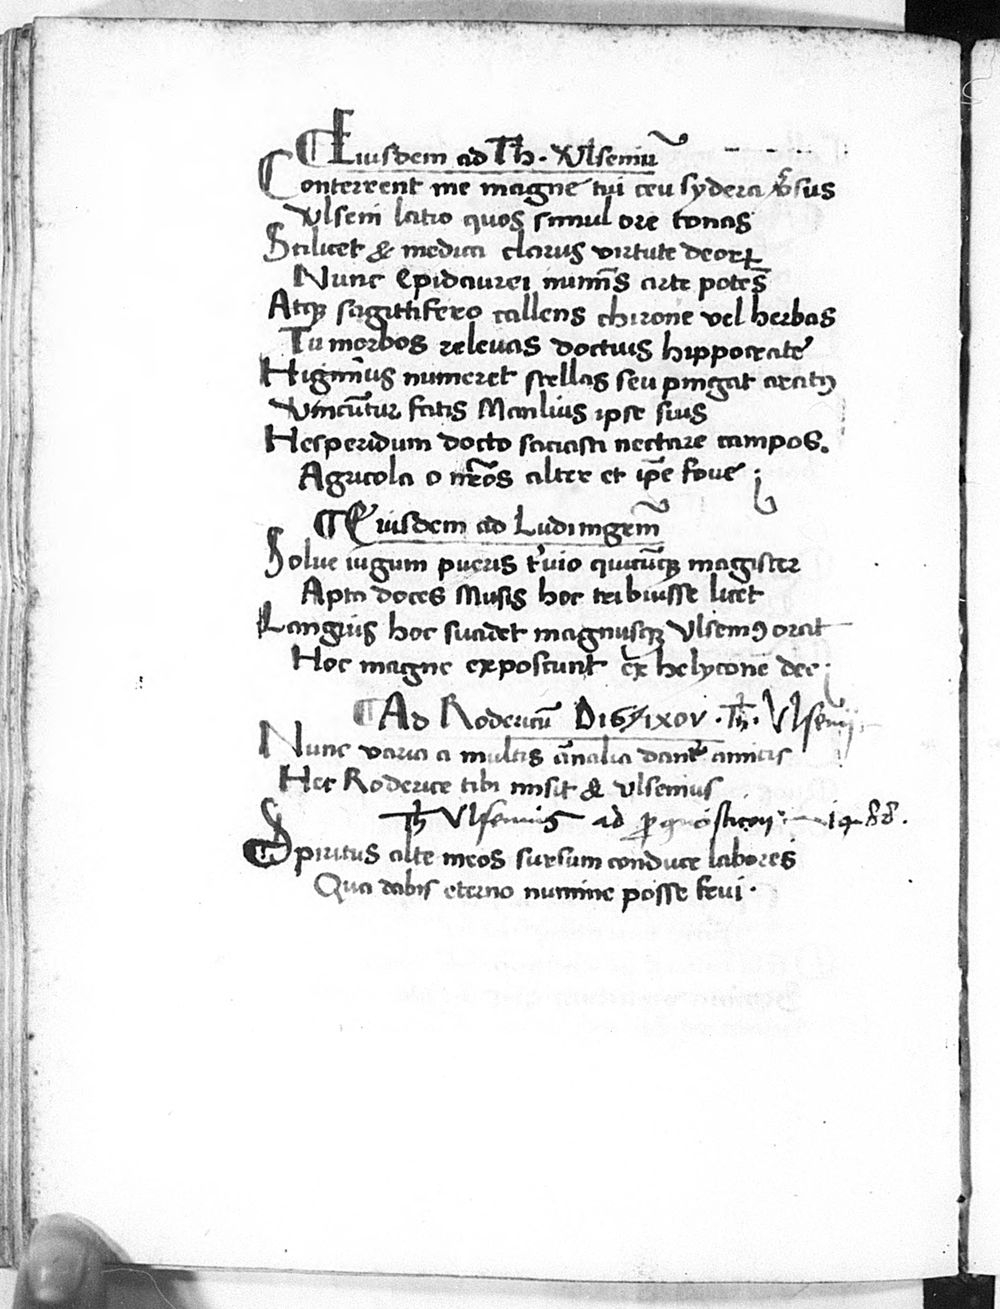 Eiusdem ad Th. Vlseniũ
Conterrent me magne tui ceu sydera v̓sus
Vlseni latio quos simul ore tonas
Scilicet & medica clarus virtute deoꝝ
Nunc Epidaurei numīs arte potes
Atqꝫ sagittifero callens chirone vel herbas
Tu morbos relevas doctius hippocrate
Higinīus numeret stellas seu pingat aratꝰ
Vincūtur fatis Manlius ipse suis
Hesperidum docto saciasti nectare campos.
Agricola o nr̄os alter et ip̄e fove
Eiusdem ad Ludimgrm̄
Solve iugum pueris t̓uio quicūqꝫ magister
Apta doces Musis hoc tribuisse licet
Langius hoc suadet magnusqꝫ Vlsemꝰ orat
Hoc magne exposcunt ex helycone dee.
Ad Rodericū Διςτιχον. Th. Vlsenij
Nunc varia a multis āualia dant̓ amicis
Hec Roderice tibi misit & vlsenius
Th Vlsenius ad ꝓgnosticon 1488.
Spiritus alte meos sursum conduce labores
Qua dabis eterno numine posse frui.